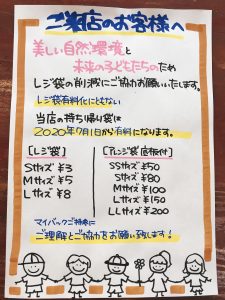 ご来店のお客様へ
美しい自然環境と
未来の子どもたちのため
レジ袋の削減にご協力お願いいたします。
レジ袋有料化にともない
当店の持ち帰り袋は
2020年7月1日から有料になります。
[レジ袋]
Sサイズ ¥3
Mサイズ ¥5
Lサイズ ¥8
[アレンジ袋 底板付]
SSサイズ ¥50
Sサイズ ¥80
Mサイズ ¥100
Lサイズ ¥150
LLサイズ ¥200
マイバックご持参に
ご理解とご協力をお願い致します！